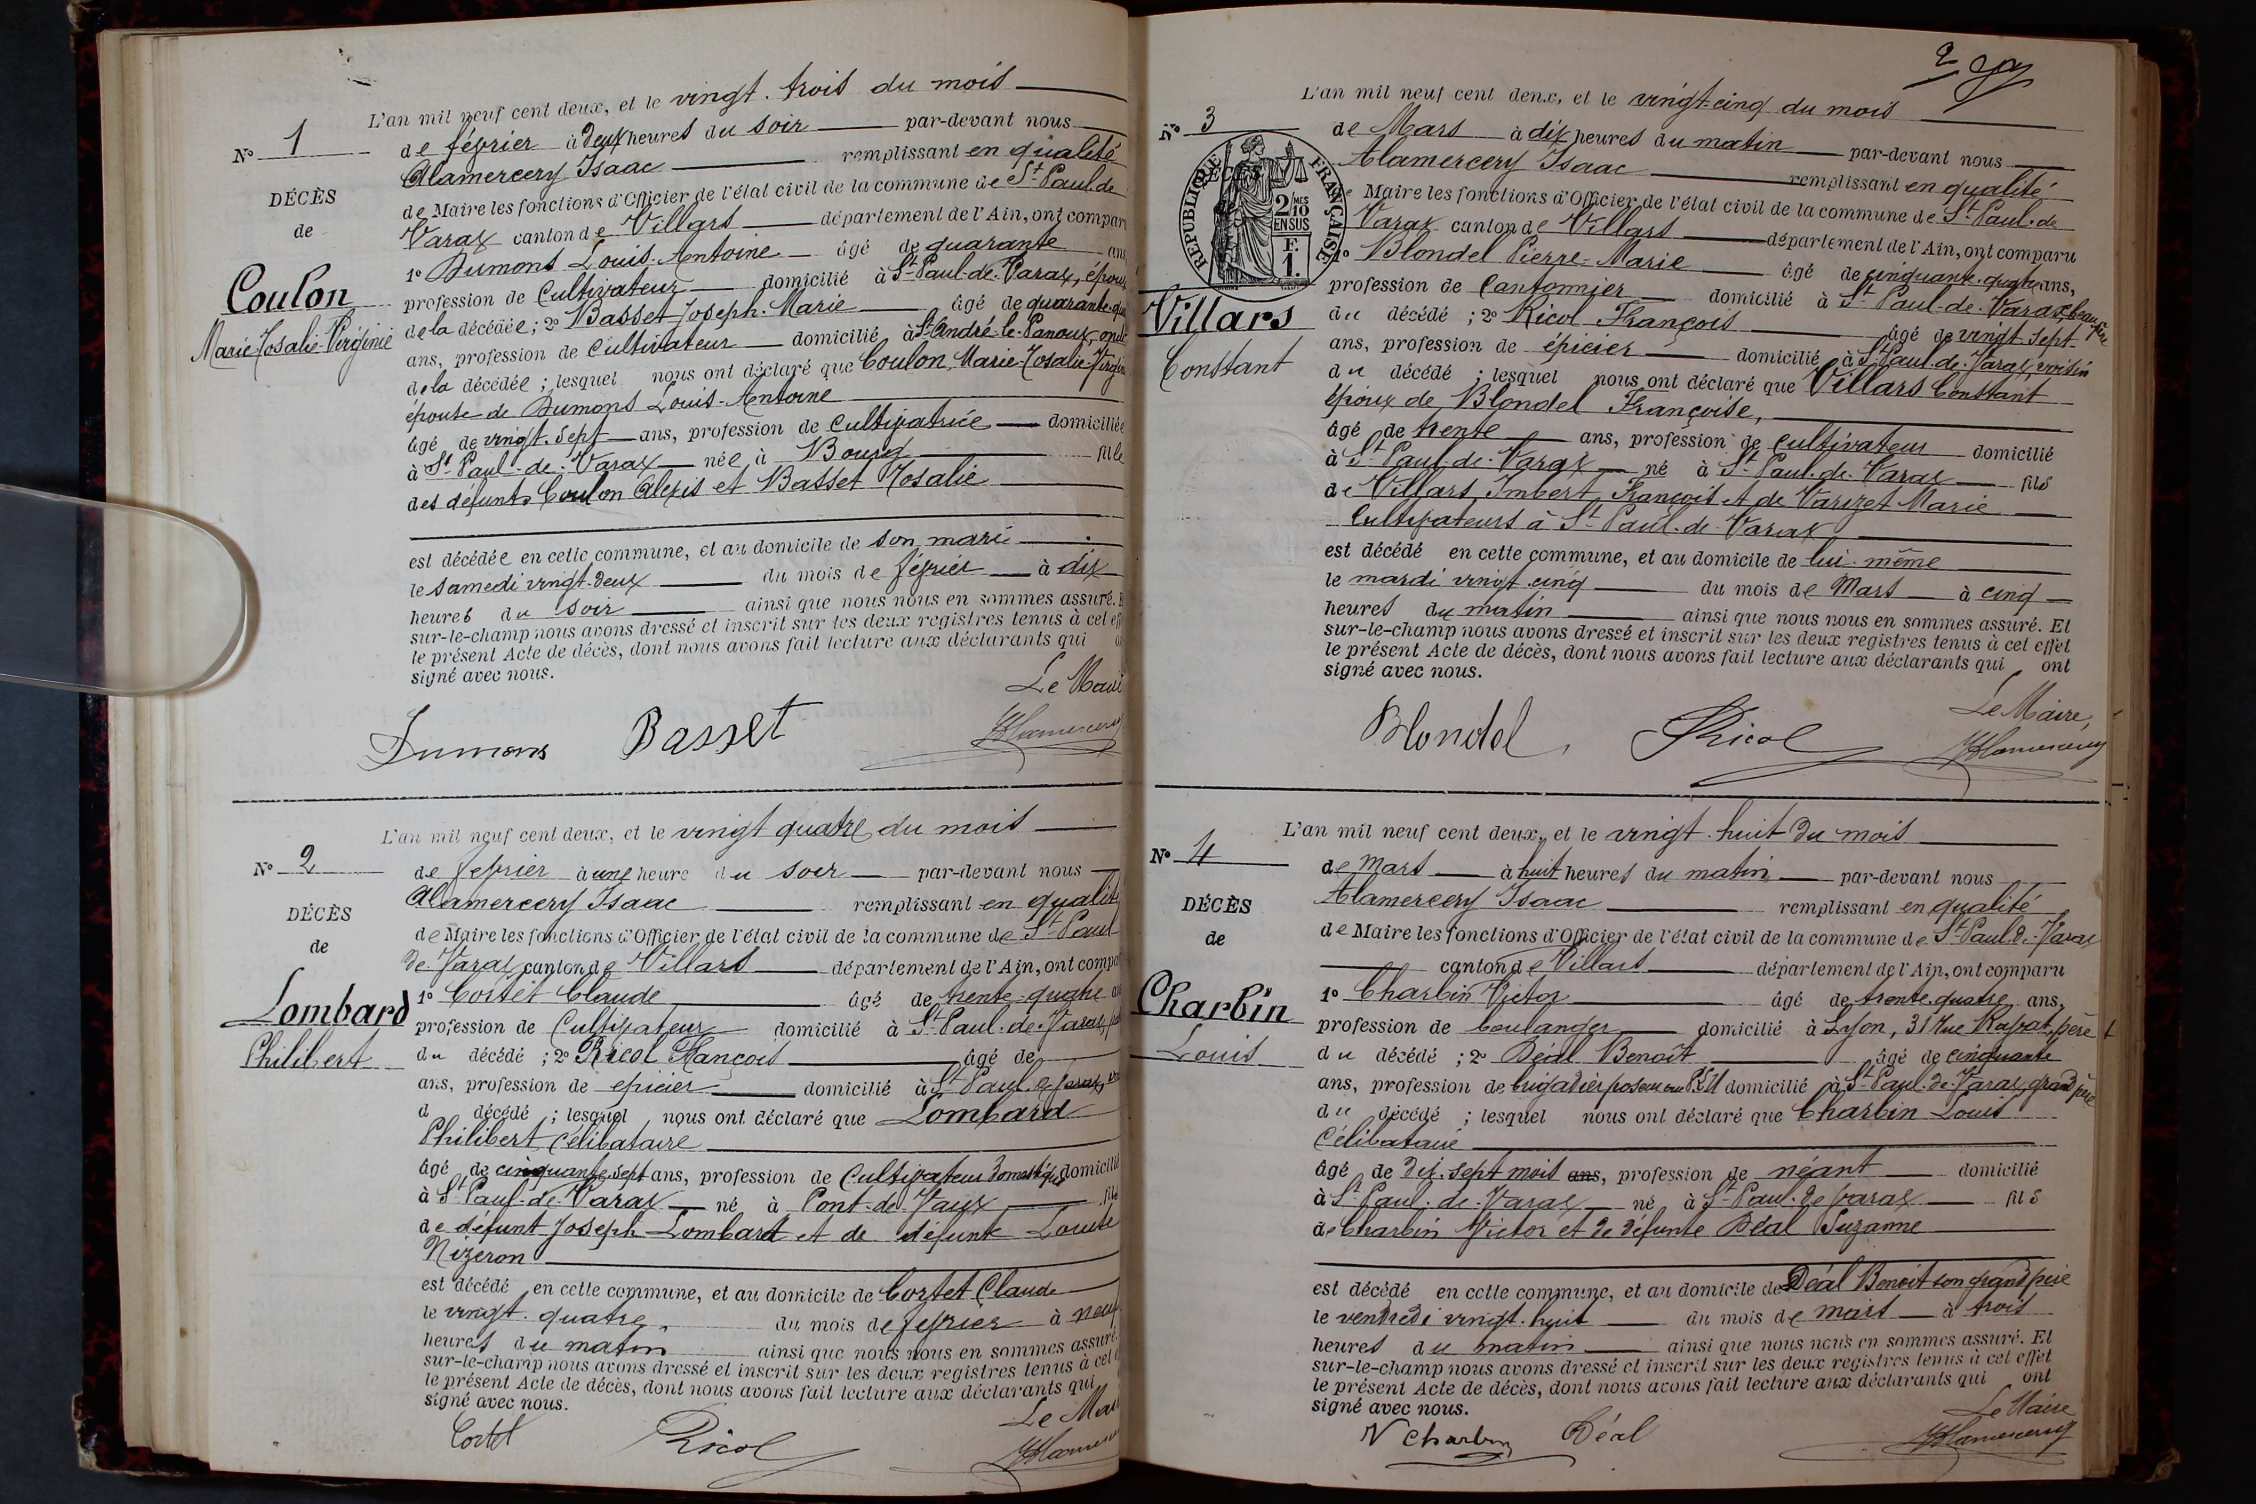 L'an mil neuf cent deux, et le vingt-trois du mois
de février à deux heures du soir par-devant nous
N° 1
Alamercery Isaac remplissant en qualité
DÉCÈS
de Maire les fonctions d'Officier de l'état civil de la commune de St Paul-de
de
Varax canton de Villars département de l'Ain, ont compar
1° Dumons Louis-Antoine âgé de quarante ans
Coulon
profession de Cultivateur domicilié à St Paul-de-Varax, époux
Marie-Rosalie-Virginie
de la décédée ; 2° Basset Joseph-Marie âgé de quarante
ans, profession de Cultivateur domicilié à St André-le-Panoux, oncle
de la décédée ; lesquels nous ont déclaré que Coulon Marie-Rosalie-Virginie
épouse de Dumons Louis-Antoine
âgé de vingt-sept ans, profession de Cultivatrice domiciliée
à St Paul-de-Varax née à Bourg fille
des défunts Coulon Alexis et Basset Rosalie
est décédée en cette commune, et au domicile de son mari
le samedi vingt-deux du mois de février à dix
heures du soir ainsi que nous nous en sommes assuré.
sur-le-champ nous avons dressé et inscrit sur les deux registres tenus à cet eff
le présent Acte de décès, dont nous avons fait lecture aux déclarants qui
signé avec nous.
Le Mair
Dumons Basset Alamercery
L'an mil neuf cent deux, et le vingt quatre du mois
N° 2
de février à une heure du soir par-devant nous
Alamercery Isaac remplissant en qualité
DÉCÈS
de Maire les fonctions d'Officier de l'état civil de la commune de St Paul
de
de Varax canton de Villars département de l'Ain, ont compa
Lombard
1° Cortet Claude âgé de trente-quatre
profession de Cultivateur domicilié à St Paul-de-Varax
Philibert
du décédé ; 2° Ricol François âgé de
ans, profession de épicier domicilié à St Paul de Varax
d décédé ; lesquel nous ont déclaré que Lombard
Philibert célibataire
âgé de cinquante sept ans, profession de Cultivateur domestique domicilié
à St Paul-de-Varax né à Pont-de-Vaux fils
de défunt Joseph Lombard et de défunte Louise
Nizeron
est décédé en cette commune, et au domicile de Cortet Claude
le vingt-quatre du mois de février à neuf
heures du matin ainsi que nous nous en sommes assuré.
sur-le-champ nous avons dressé et inscrit sur les deux registres tenus à cet
le présent Acte de décès, dont nous avons fait lecture aux déclarants qui
signé avec nous.
Le Mai
Cortet Ricol Alamercery
2
L'an mil neuf cent deux, et le vingt-cinq du mois
N° 3
de Mars à dix heures du matin par-devant nous
Alamercery Isaac remplissant en qualité
RÉPUBLIQUE FRANÇAISE
2 MES
10
EN SUS
F.
1.
de Maire les fonctions d'Officier de l'état civil de la commune de St Paul-de
Varax canton de Villars département de l'Ain, ont comparu
1° Blondel Pierre-Marie âgé de cinquante-quatre ans,
profession de Cantonnier domicilié à St Paul-de-Varax beau père
Villars
du décédé ; 2° Ricol François âgé de vingt sept
ans, profession de épicier domicilié à St Paul-de-Varax, voisin
Constant
du décédé ; lesquel nous ont déclaré que Villars Constant
époux de Blondel Françoise,
âgé de trente ans, profession de cultivateur domicilié
à St Paul-de-Varax né à St Paul-de-Varax fils
de Villars Imbert François et de Varizet Marie
Cultivateurs à St Paul-de-Varax
est décédé en cette commune, et au domicile de lui-même
le mardi vingt-cinq du mois de Mars à cinq
heures du matin ainsi que nous nous en sommes assuré. Et
sur-le-champ nous avons dressé et inscrit sur les deux registres tenus à cet effet
le présent Acte de décès, dont nous avons fait lecture aux déclarants qui ont
signé avec nous.
Le Maire,
Blondel, Ricol Alamercery
L'an mil neuf cent deux, et le vingt-huit du mois
N° 4
de mars à huit heures du matin par-devant nous
Alamercery Isaac remplissant en qualité
DÉCÈS
de Maire les fonctions d'Officier de l'état civil de la commune de St Paul-de-Varax
de
canton de Villars département de l'Ain, ont comparu
Charbin
1° Charbin Victor âgé de trente-quatre ans,
profession de boulanger domicilié à Lyon, 31 rue Rapat, père
Louis
du décédé ; 2° Déal Benoît âgé de cinquante
ans, profession de brigadier poseur domicilié à St Paul-de-Varax, grand père
du décédé ; lesquel nous ont déclaré que Charbin Louis
Célibataire
âgé de dix-sept mois ans, profession de néant domicilié
à St Paul-de-Varax né à St Paul-de-Varax fils
de Charbin Victor et de défunte Déal Suzanne
est décédé en cette commune, et au domicile de Déal Benoit son grand père
le vendredi vingt-huit du mois de mars à trois
heures du matin ainsi que nous nous en sommes assuré. Et
sur-le-champ nous avons dressé et inscrit sur les deux registres tenus à cet effet
le présent Acte de décès, dont nous avons fait lecture aux déclarants qui ont
signé avec nous.
Le Maire
V Charbin Déal Alamercery